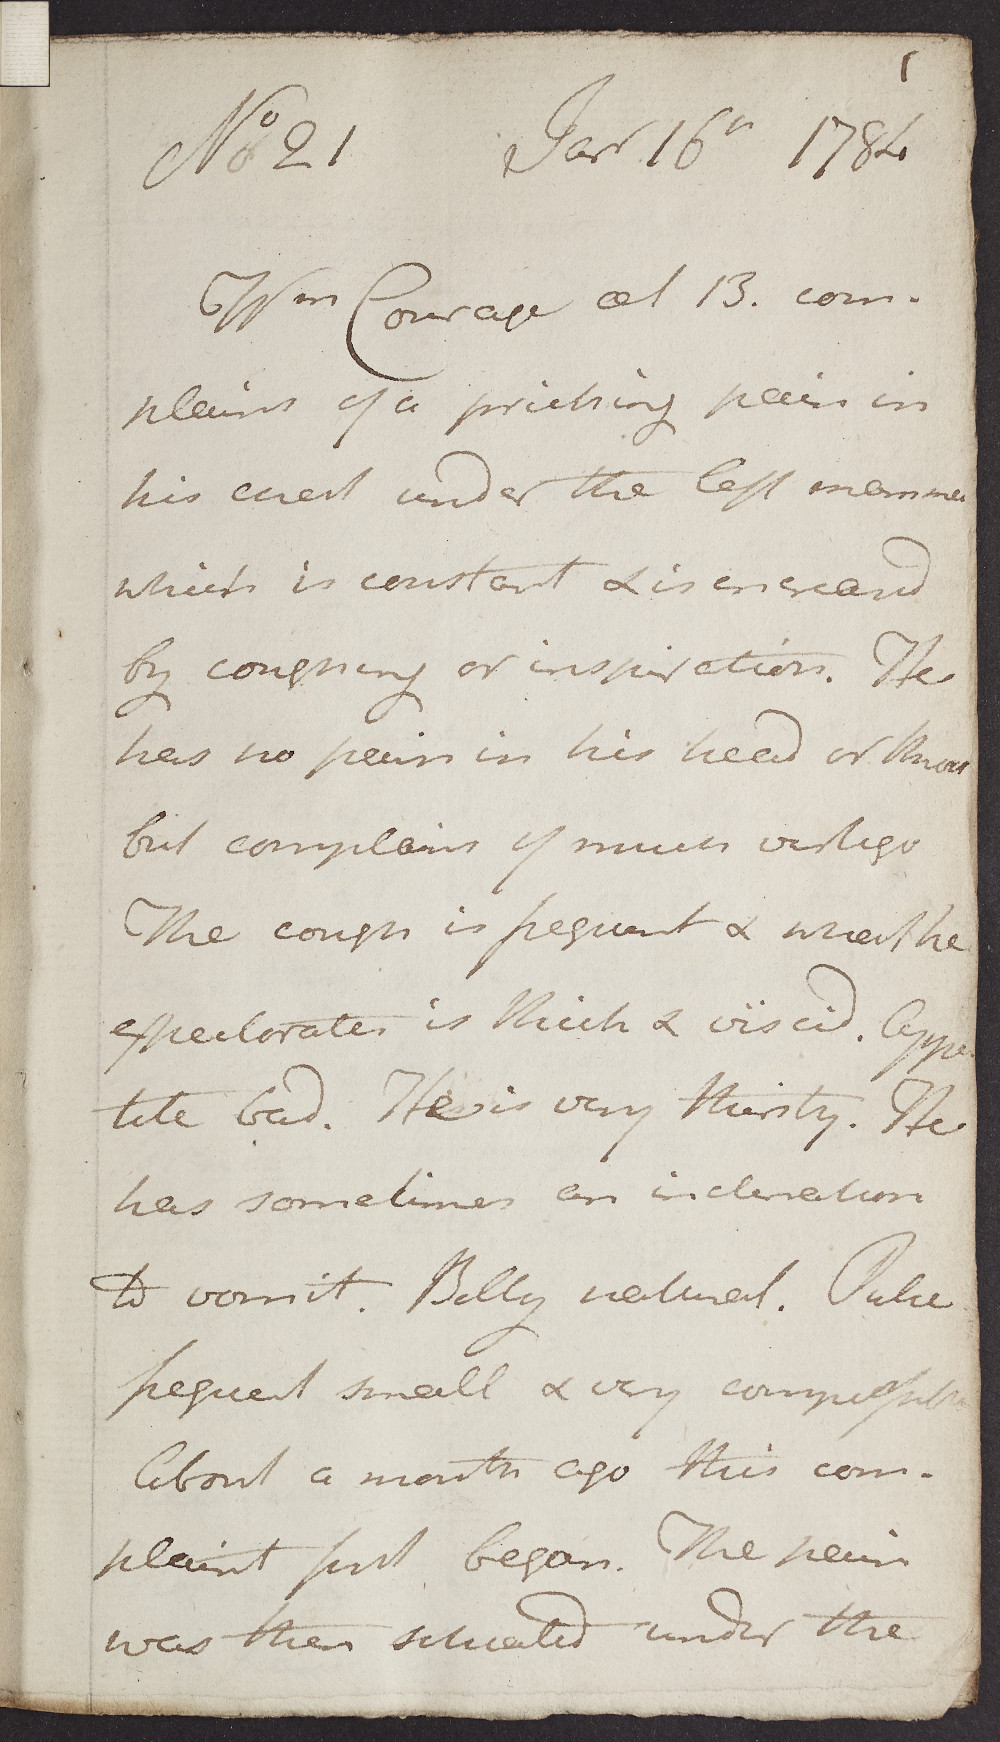 1
No 21 Janr 16th 1784
Wm Courage æt 13. com-
plains of a pricking pain in
his chest under the left mamma
which is constant & is encreased
by coughing or inspiration. He
has no pain in his head or throat
but complains of much vertigo
The cough is frequent & what he
expectorates is thick & viscid. Appe
tite bad. He is very thirsty. He
has sometimes an inclination
to vomit. Belly natural. Pulse
frequent small & very compressible
About a month ago this com-
plaint first began. The pain
was then situated under the